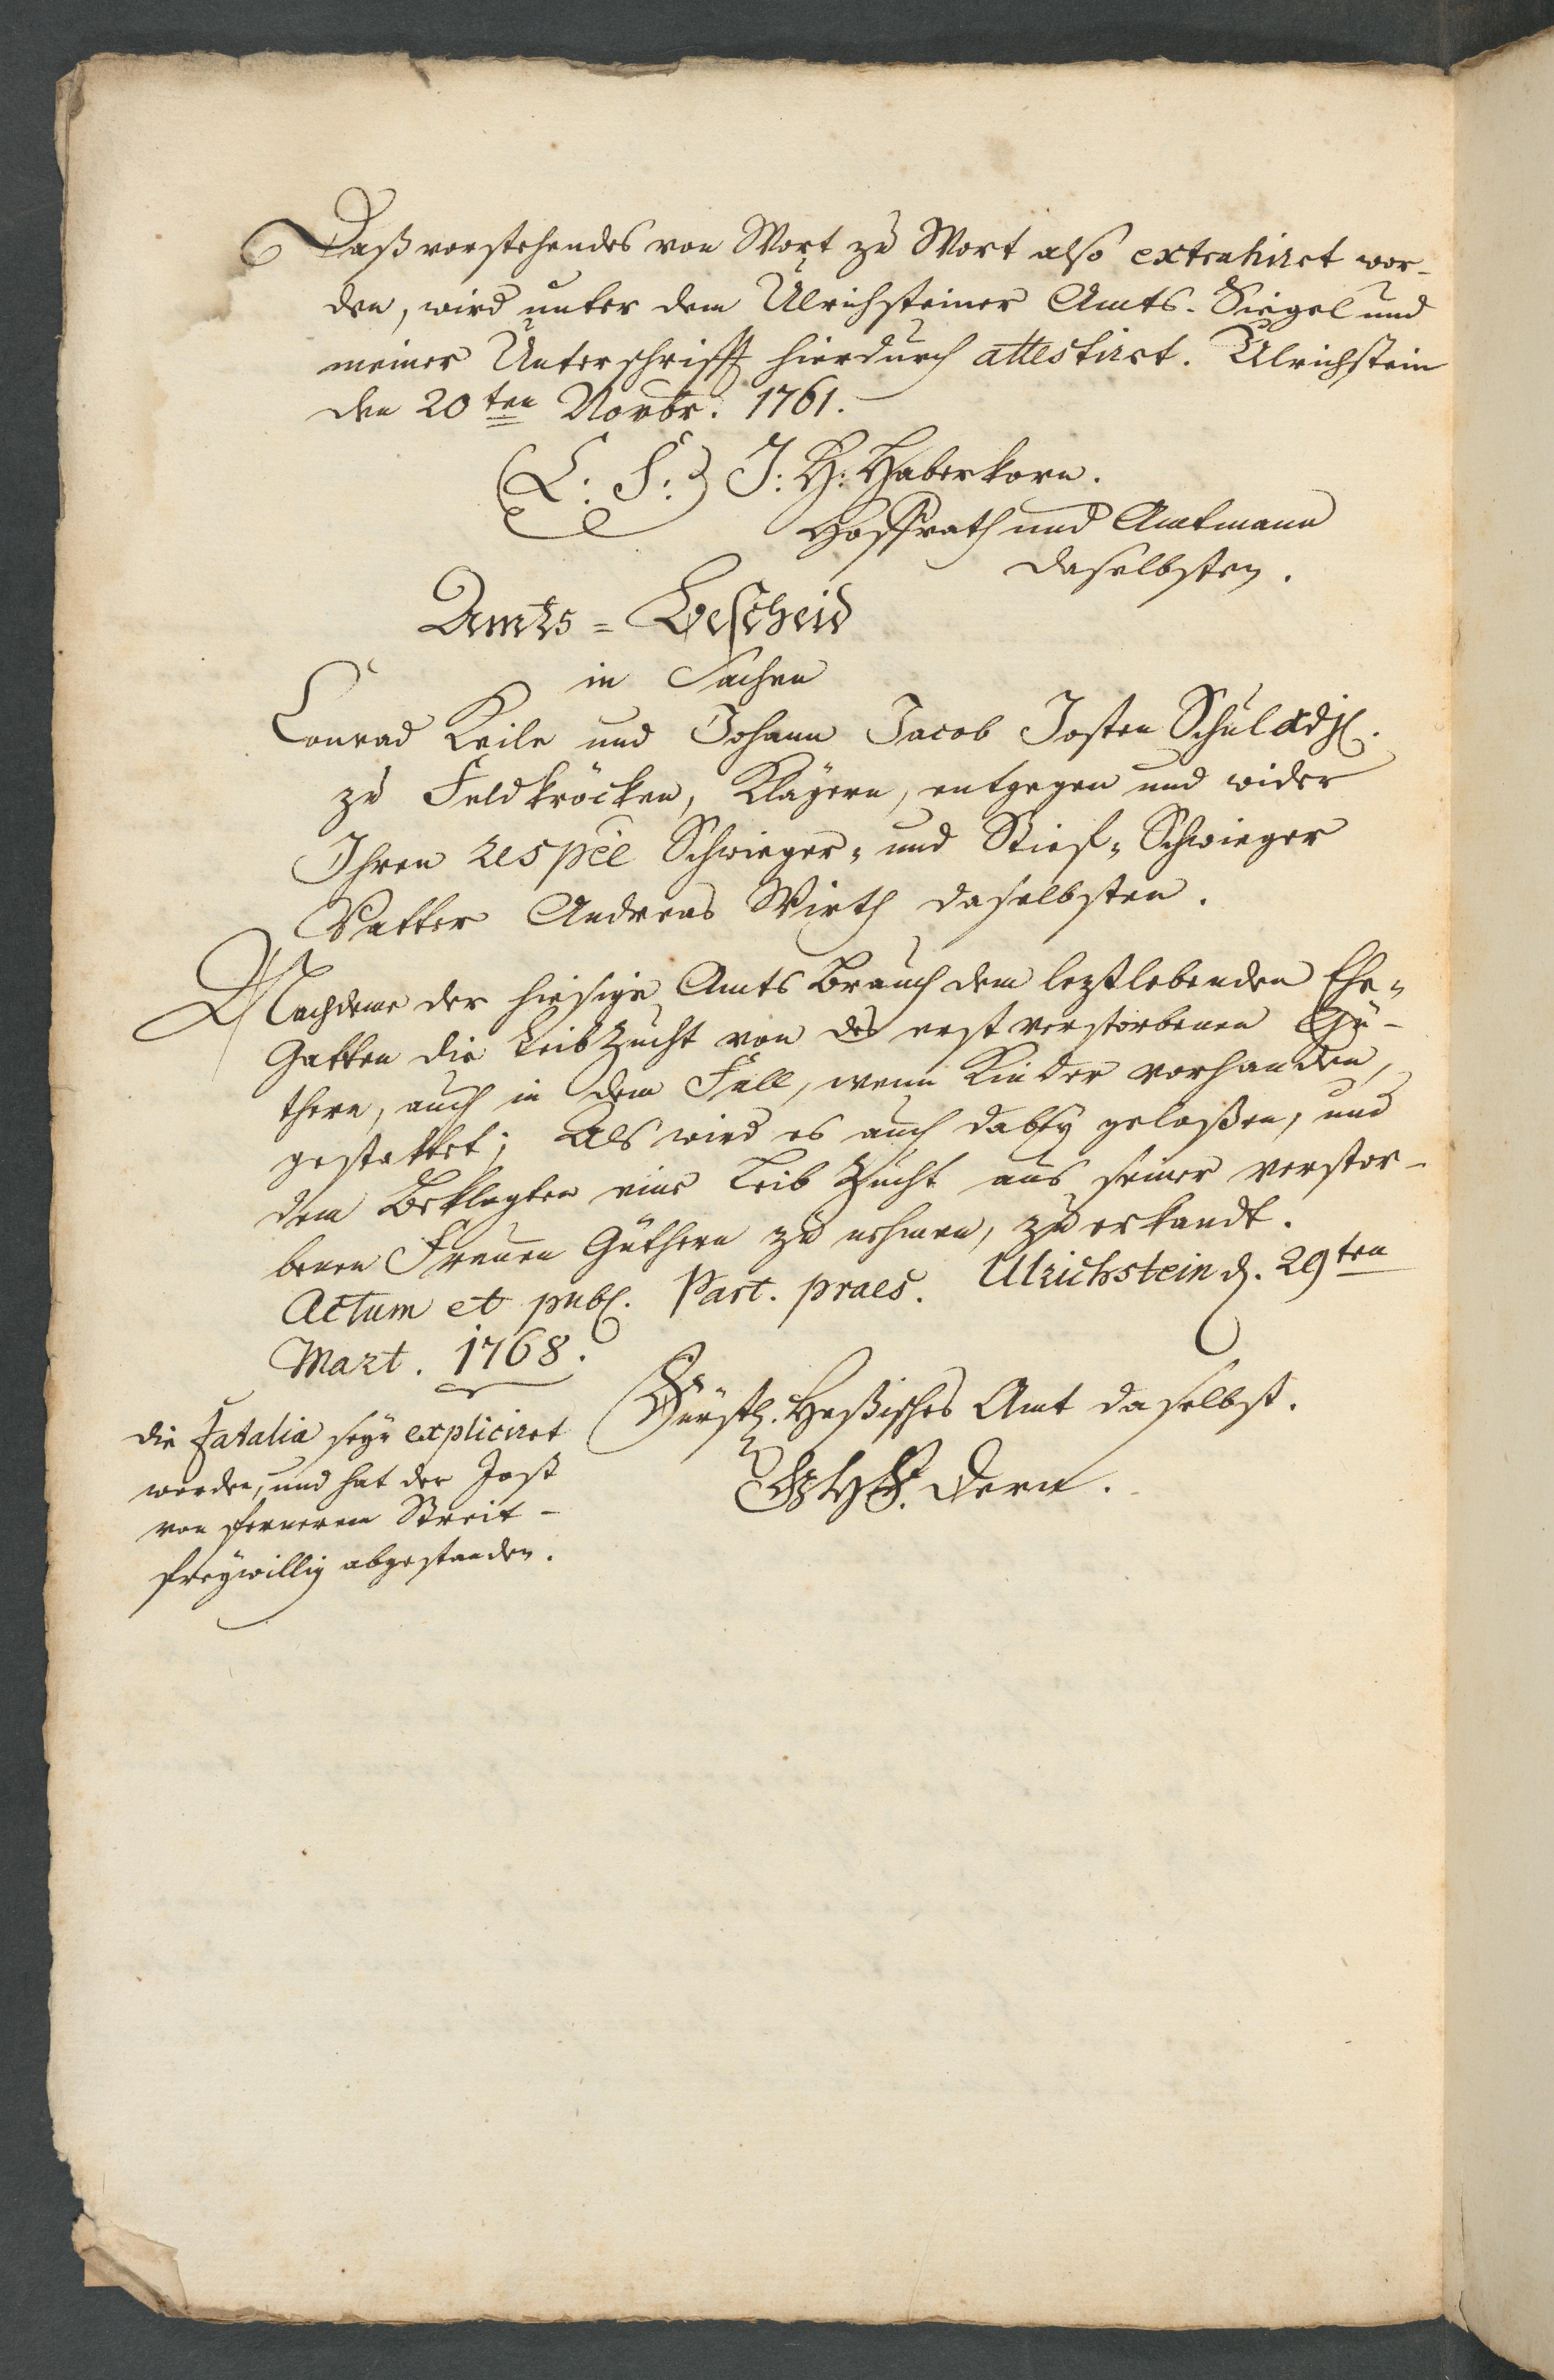 Daß vorstehendes von Wort zu Wort also extrahiret wor-
den, wird unter dem Ulrichsteiner Amts-Siegel und
meiner Unterschrifft hierdurch attestiret. Ulrichstein
den 20ten Novbr. 1761.
(L: S:) J: H: Haberkorn.
Hoffrath und Amtmann
daselbsten.
Amts=Bescheid
in Sachen
Conrad Keile und Johann Jacob Josten Schul adj.
zu Feldkröcken, Klägern, entgegen und wider
Ihren respèe Schwieger- und Stief-Schwieger
Vatter Andreas Wirth daselbsten.
Nachdeme der hiesige Amts Brauch dem leztlebenden Ehe-
Gatten die LeibZucht von des erst verstorbenen Gü-
thern, auch in dem Fall, wenn Kinder vorhanden,
gestattet; Als wird es auch dabey gelaßen, und
dem Beklagten eine Leib Zucht aus seiner verstor-
benen Frauen Güthern zu nehmen, zu erkandt.
Actum et publ. Part. praes. Ulrichstein d. 29ten
Mart. 1768.
Fürstl. Heßisches Amt daselbst.
Dern.
die Fatalia seyn expliciret
worden, und hat der Jost
von fernerem Streit-
freywillig abgestanden.